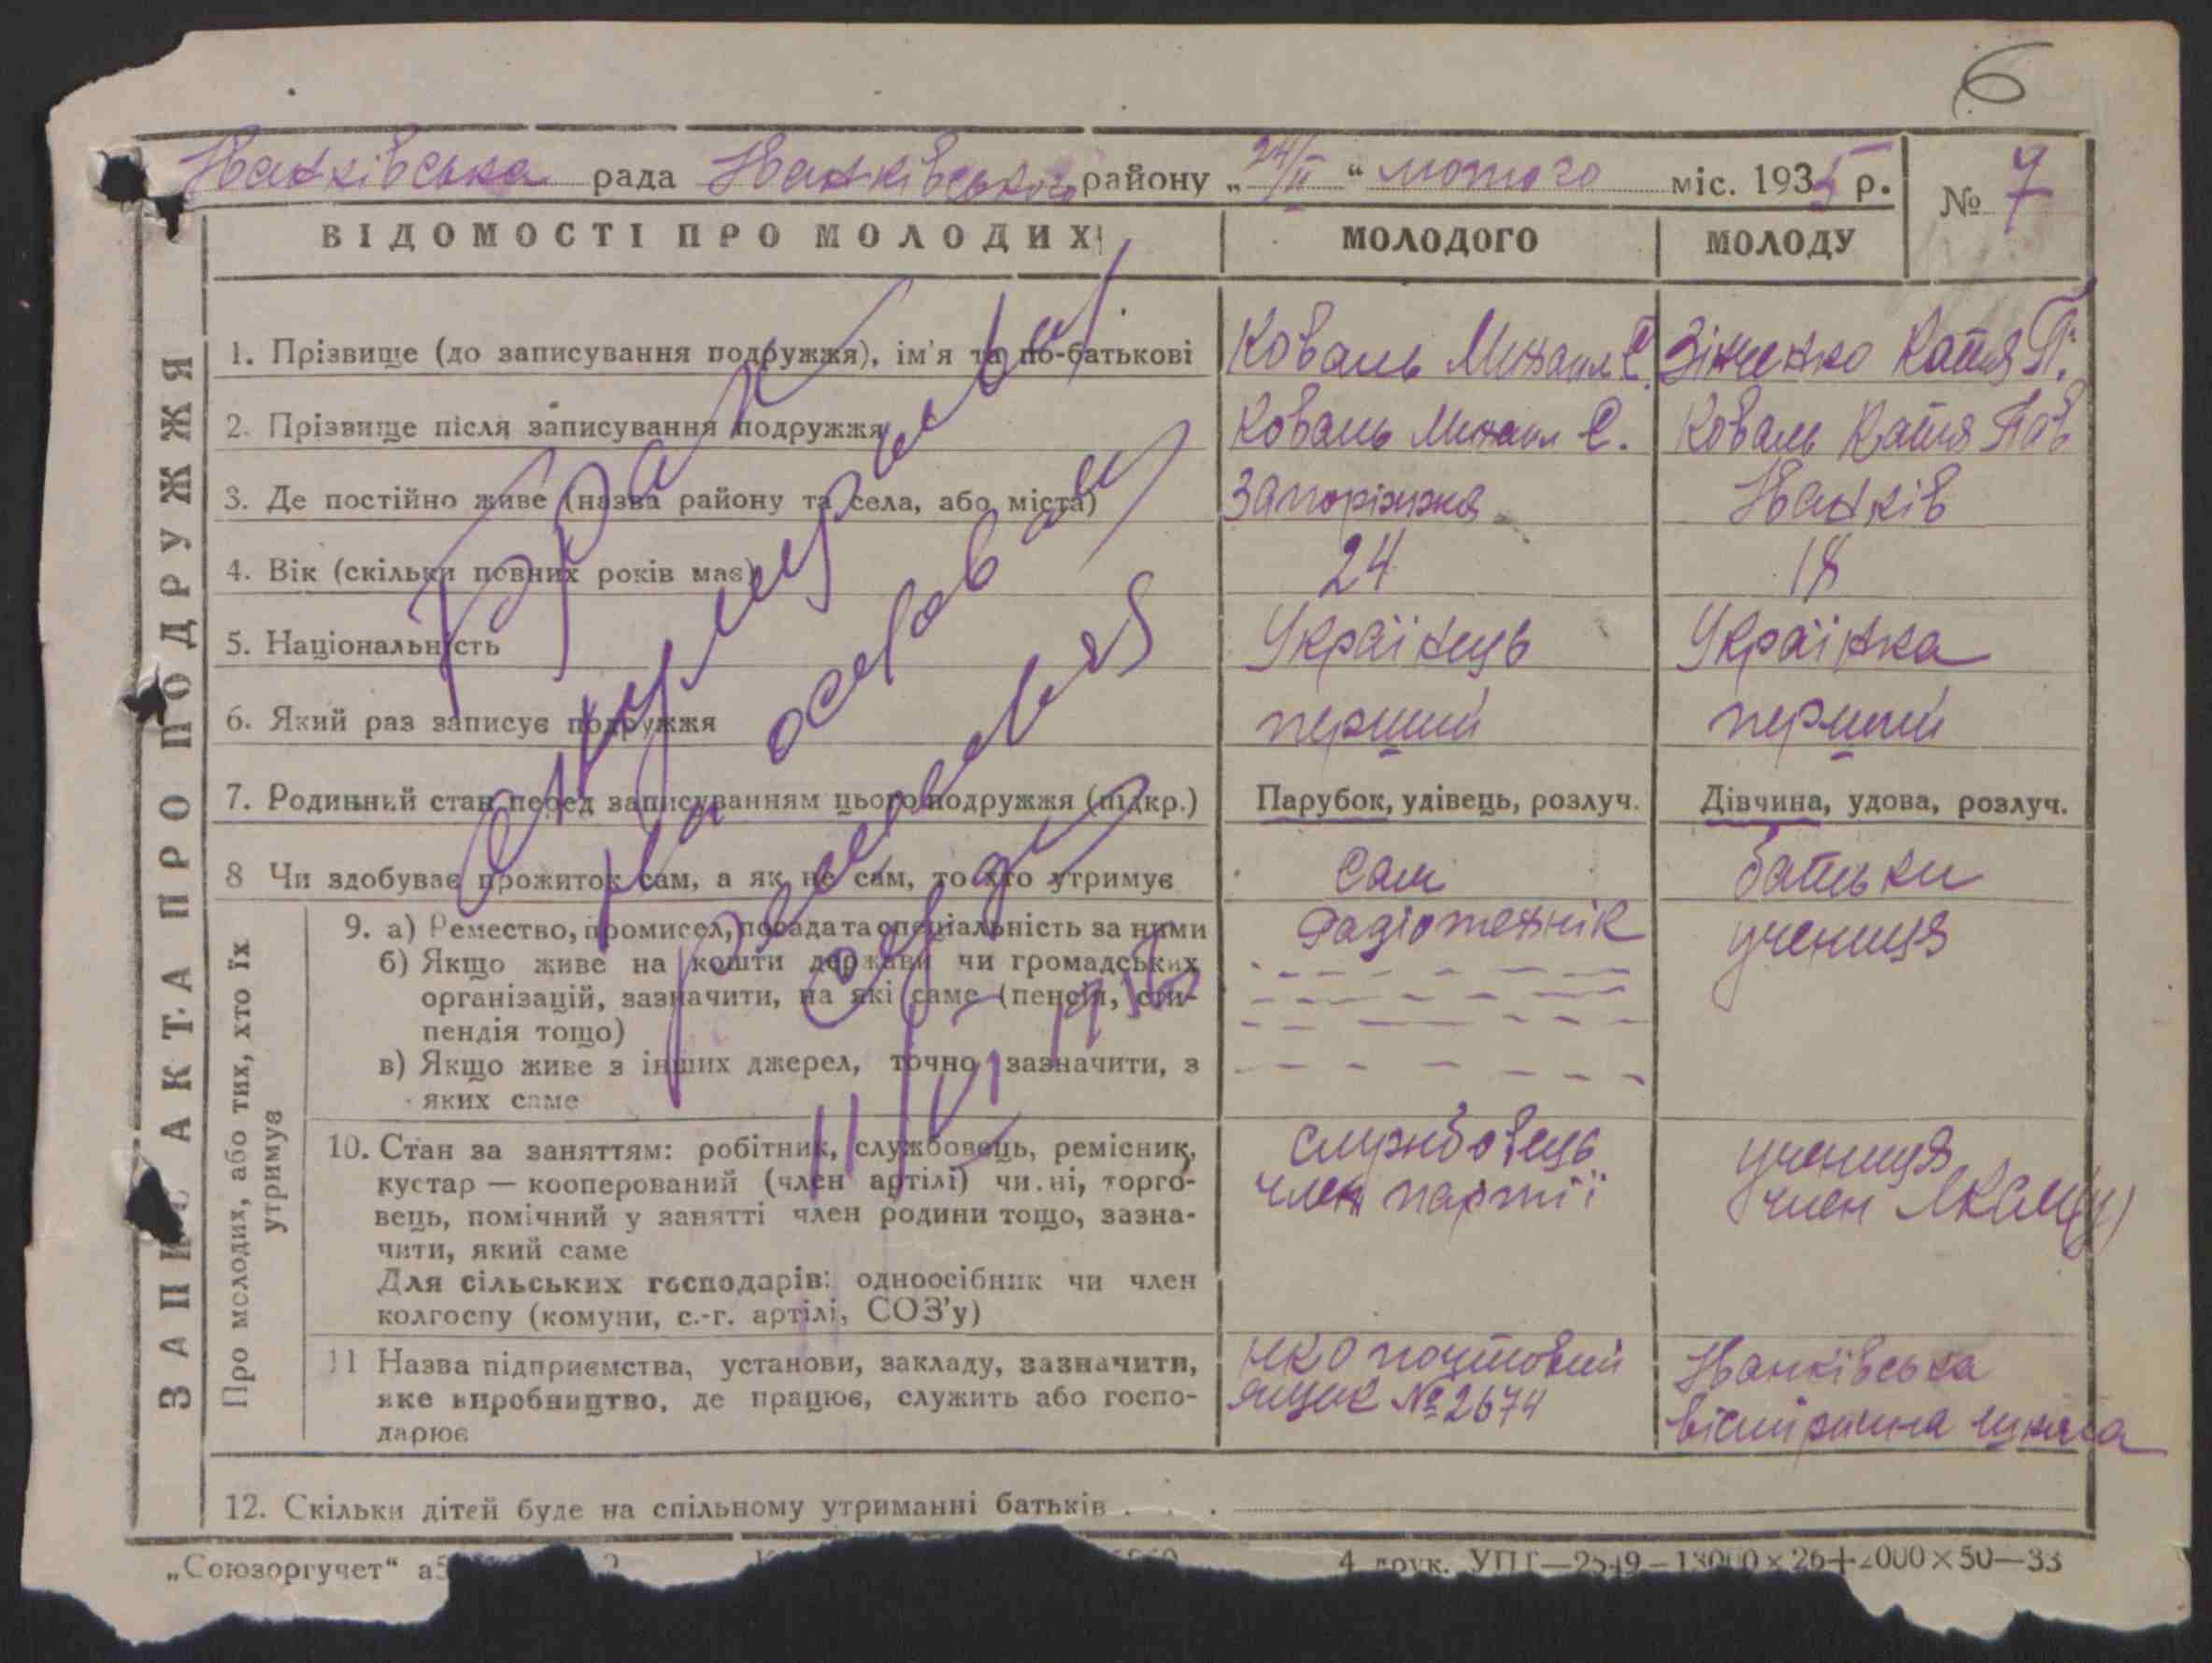 6
Іванківська рада Іванківського району „24/II“ лютого міс. 1935 р.
№ 7
ВІДОМОСТІ ПРО МОЛОДИХ
МОЛОДОГО
МОЛОДУ
ЗАПИС АКТА ПРО ПОДРУЖЖЯ
1. Прізвище (до записування подружжя), ім'я та по-батькові
Коваль Михаил С.
Зінченко Катя П.
2. Прізвище після записування подружжя
Коваль Михаил С.
Коваль Катя Пав
3. Де постійно живе (назва району та села, або міста)
Запоріжжя
Іванків
4. Вік (скільки повних років має)
24
18
5. Національність
Українець
Українка
6. Який раз записує подружжя
перший
перший
7. Родинний стан перед записуванням цього подружжя (підкр.)
Парубок, удівець, розлуч.
Дівчина, удова, розлуч.
8 Чи здобуває прожиток сам, а як не сам, то хто утримує
Сам
батьки
Про молодих, або тих, хто їх
утримує
9. а) Ремество, промисел, посада та спеціальність за ними
Радіотехнік
учениця
б) Якщо живе на кошти держави чи громадських
організацій, зазначити, на які саме (пенсія, сти-
пендія тощо)
в) Якщо живе з інших джерел, точно зазначити, з
яких саме
10. Стан за заняттям: робітник, службовець, ремісник,
кустар — кооперований (член артілі) чи ні, торго-
вець, помічний у занятті член родини тощо, зазна-
чити, який саме
Для сільських господарів: одноосібник чи член
колгоспу (комуни, с.-г. артілі, СОЗ'у)
службовець
член партії
учениця
член ЛКСМУ
11 Назва підприємства, установи, закладу, зазначити,
яке виробництво, де працює, служить або госпо-
дарює
НКО поштовий
ящик № 2674
Іванківська
вісмирична школа
12. Скільки дітей буде на спільному утриманні батьків . . .
Брак
анулирований
на основании
решения
суда
11/VI 1946
„Союзоргучет“
4 друк. УПП—2549—13000×26+2000×50—33